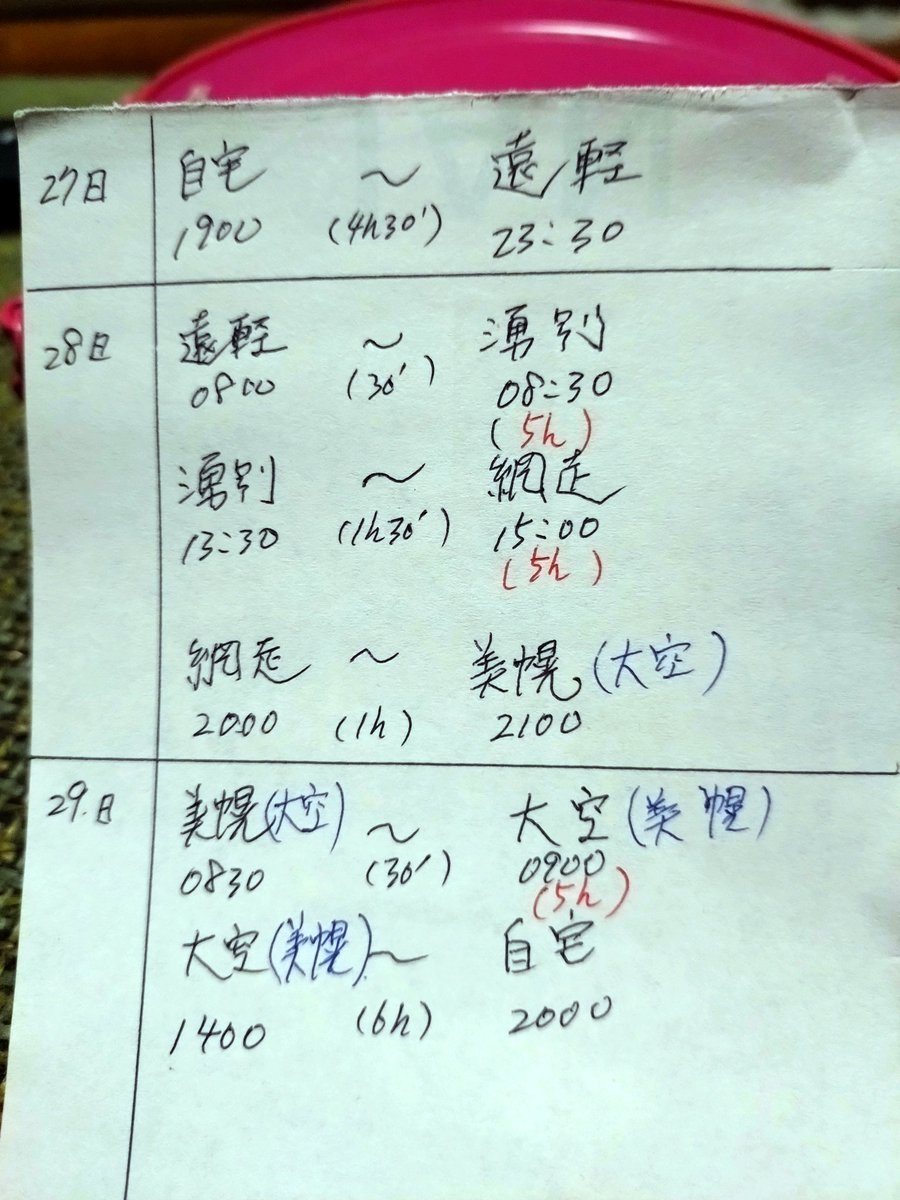 27日 自宅 〜 遠軽
1900 (4h30') 23:30
28日 遠軽 〜 湧別
0800 (30') 08:30
(5h)
湧別 〜 網走
13:30 (1h30') 15:00
(5h)
網走 〜 美幌(大空)
2000 (1h) 2100
29.日 美幌(大空) 〜 大空(美幌)
0830 (30') 0900
(5h)
大空(美幌)〜 自宅
1400 (6h) 2000